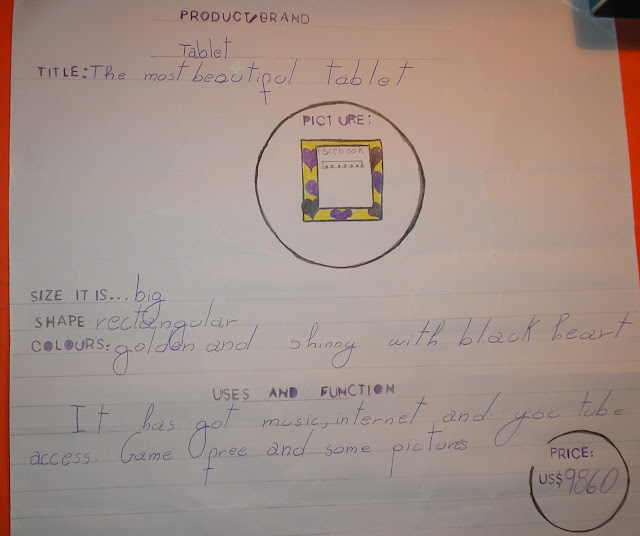 PRODUCT/BRAND
Tablet
TITLE: The most beautiful tablet
PICTURE:
Facebook
SIZE IT IS... big
SHAPE: rectangular
COLOURS: golden and shinny with black heart
USES AND FUNCTION
It has got music, internet and you tube
access. Game free and some pictures
PRICE:
US$ 9860